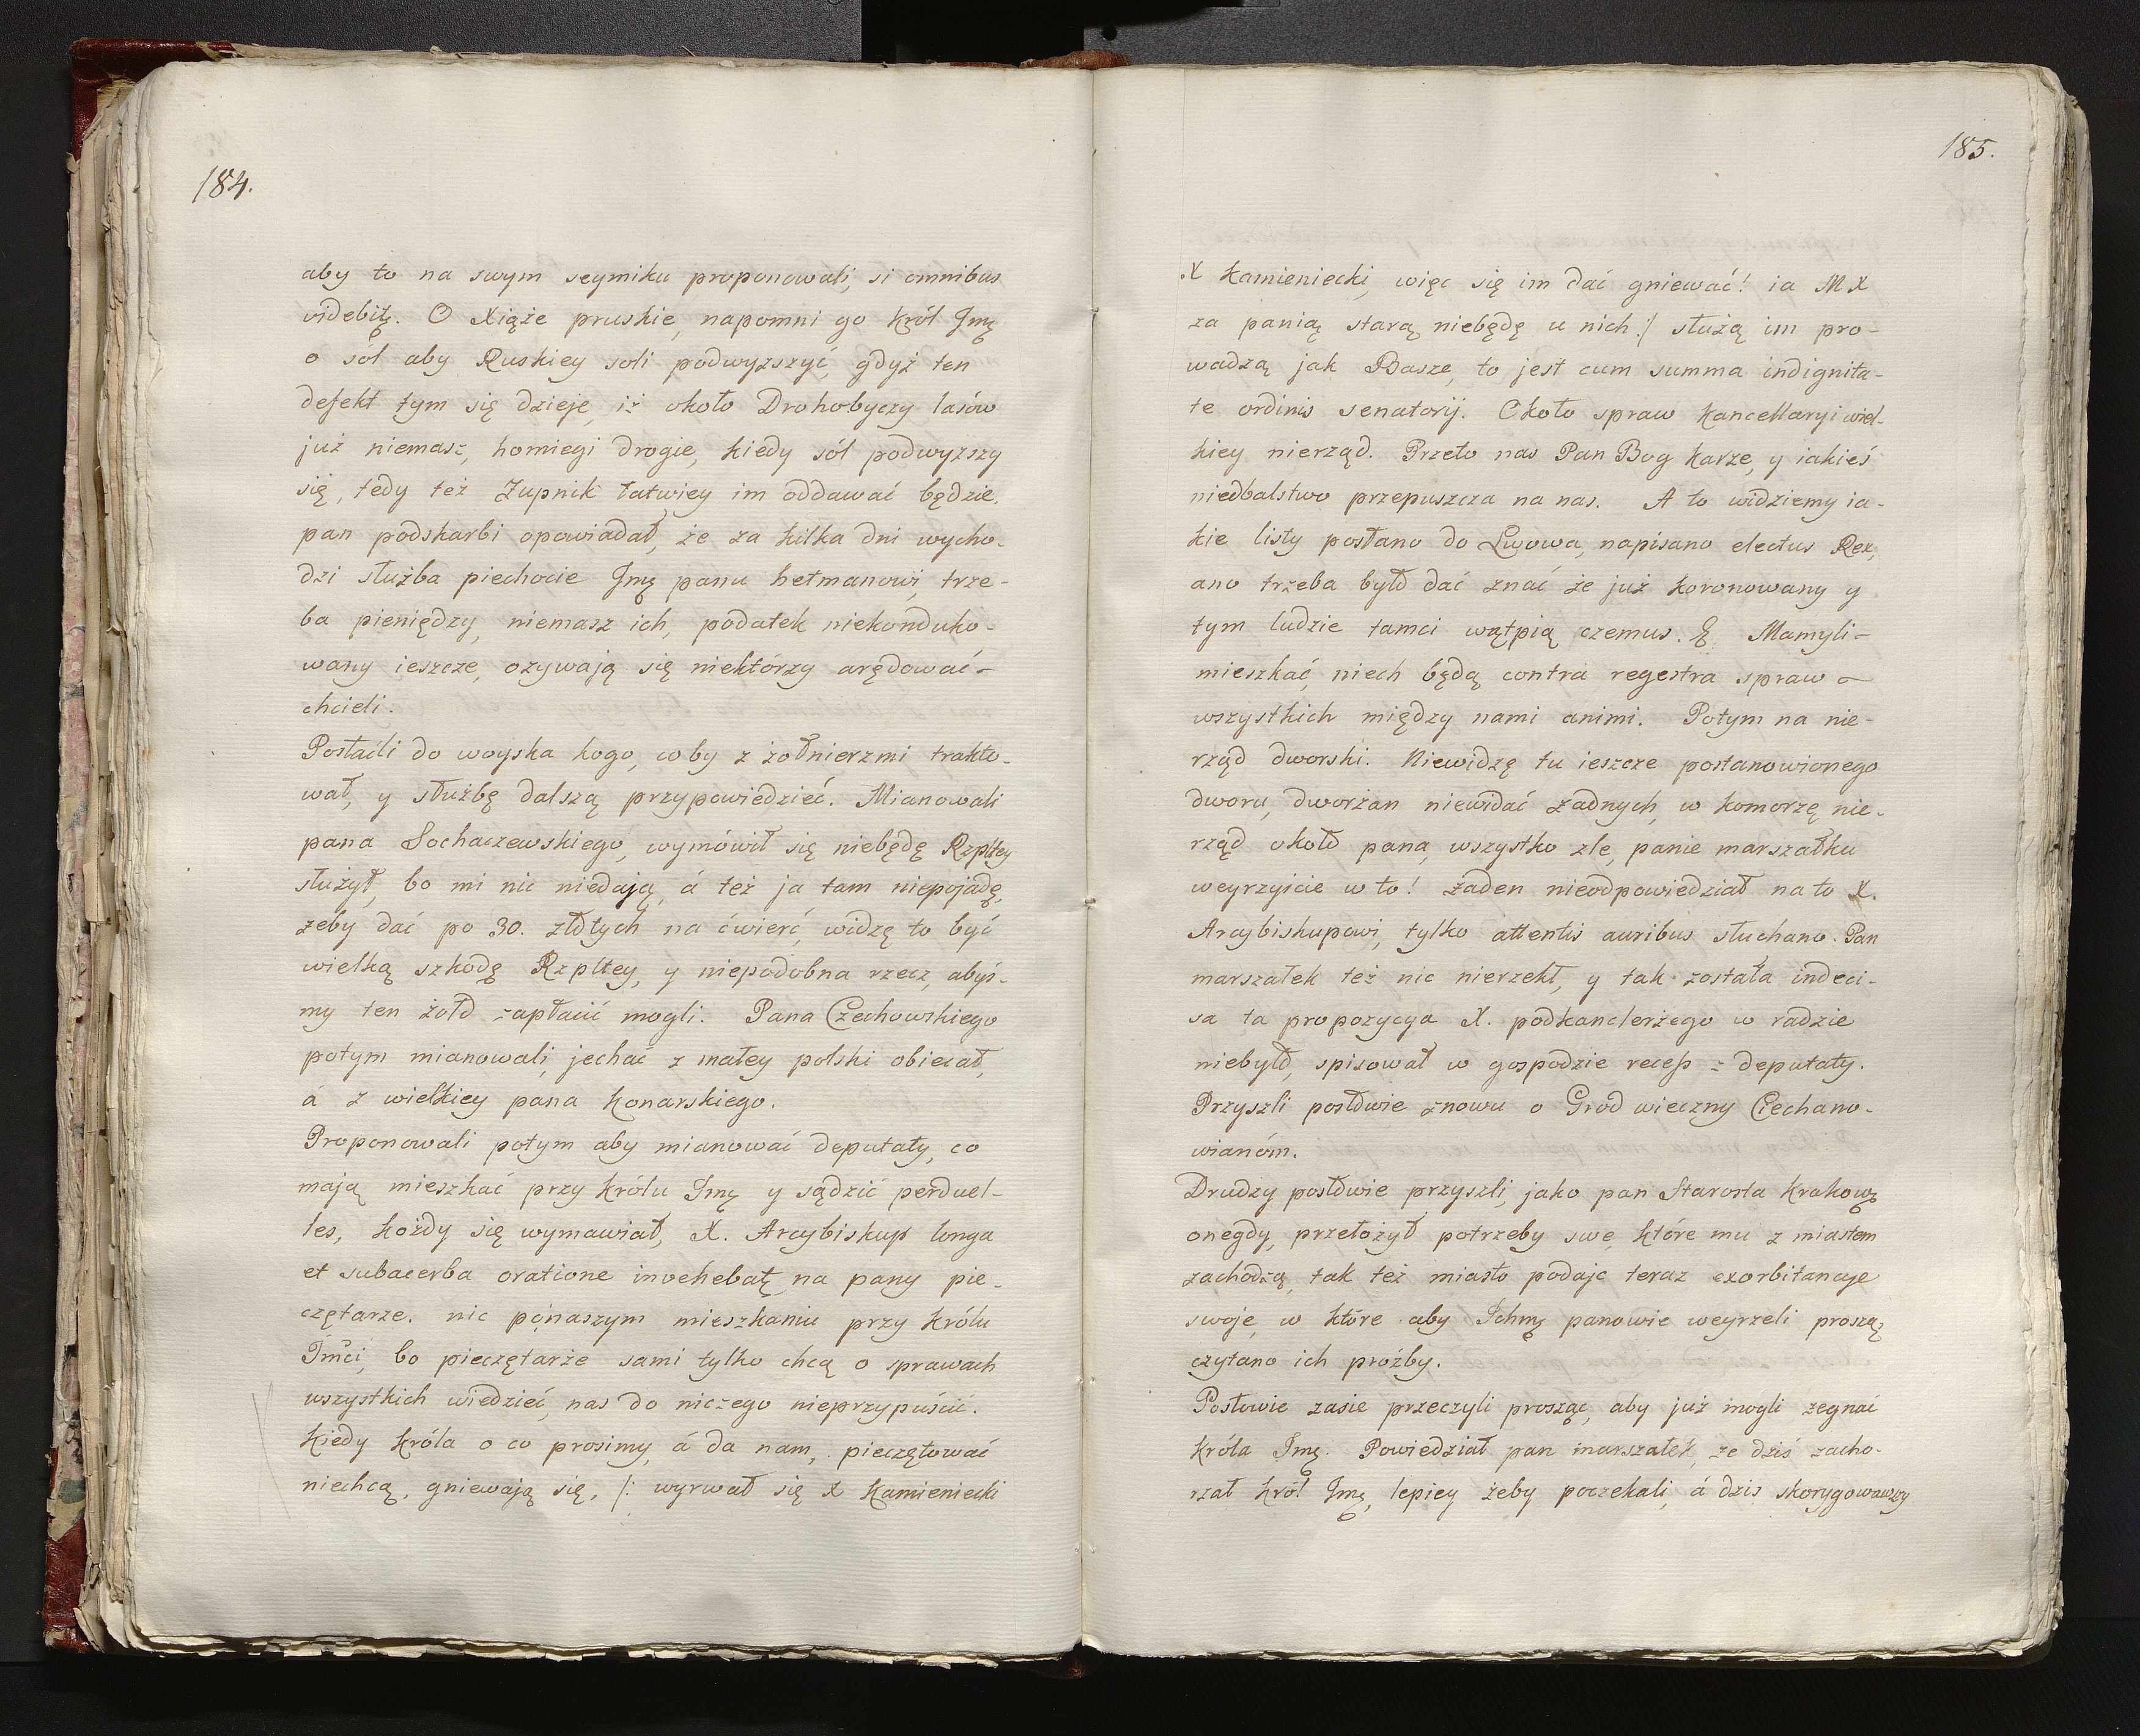 184.
aby to na swym seymiku proponowali, si omnibus
videbitę. O Xiąże pruskie, napomni go Król Jmę
o sól aby Ruskiey soli podwyzszyć, gdyż ten
defekt tym się dzieje, iż około Drohobyczy lasów
już niemasz, homiegi drogie, kiedy sól podwyzszy
się, tedy też Zupnik łatwiey im oddawać będzie.
pan podskarbi opowiadał, że za kilka dni wycho-
dzi służba piechocie Jmę panu hetmanowi, trze-
ba pieniędzy, niemasz ich, podatek niekonduko-
wany ieszcze, ozywają się niektórzy arędować-
chcieli.
Posłaćli do woyska kogo, coby z żołnierzmi trakto-
wał, y służbę dalszą przypowiedzieć. Mianowali
pana Sochaczewskiego, wymówił się niebędę Rzpltey
służył, bo mi nic niedają, á też ja tam niepojadę,
żeby dać po 30. złotych na ćwierć, widzę to być
wielką szkodę Rzpltey, y niepodobna rzecz, abyś-
my ten żołd zapłacić mogli. Pana Czechowskiego
potym mianowali, jechać z małey polski obiecał,
á z wielkiey pana Konarskiego.
Proponowali potym aby mianować deputaty, co
mają mieszkać przy królu Jmę y sądzić perduel-
les, każdy się wymawiał, X. Arcybiskup longa
et subacerba oratione invehebatę na pany pie-
czętarze. nic ponaszym mieszkaniu przy królu
Jmci, bo pieczętarże sami tylko chcą o sprawach
wszystkich wiedzieć, nas do niczego nieprzypuścić.
Kiedy króla o co prosimy, á da nam, pieczętować
niechcą, gniewają się, /: wyrwał się X Kamieniecki
185.
X Kamieniecki, więc się im dać gniewać! ia MX
za panią starą niebędę u nich :/ służą im pro-
wadzą jak Basze, to jest cum summa indignita-
te ordinis senatorij. Około spraw Kancellaryi wiel-
kiey nierząd. Przeto nas Pan Bog karze, y iakieś
niedbalstwo przepuszcza na nas. A to widziemy ia-
kie listy posłano do Lwowa, napisano electus Rex,
ano trzeba było dać znać że już koronowany y
tym ludzie tamci wątpią czemus. Mamyli-
mieszkać, niech będą contra regestra spraw
wszystkich między nami animi. Potym na nie-
rząd dworski. Niewidzę tu ieszcze postanowionego
dworu, dworżan niewidać żadnych, w komorzę nie-
rząd około pana, wszystko zle, panie marszałku
weyrzyicie w to! żaden nieodpowiedział na to X.
Arcybiskupowi, tylko attentis auribus słuchano. Pan
marszałek też nic nierzekł, y tak została indeci-
sa ta propozycya X. podkanclerżego w radzie
niebyło, spisował w gospodzie recess z deputaty.
Przyszli posłowie znowu o Grod wieczny Ciechano-
wianóm.
Drudzy posłowie przyszli, jako pan Starosta Krakowę
onegdy, przełożył potrzeby swe, które mu z miastem
zachodzą, tak też miasto podaje teraz exorbitancye
swoje, w które aby Ichmę panowie weyrzeli proszą,
czytano ich próżby.
Posłowie zasie przeczyli prosząc, aby już mogli żegnać
króla Jmę. Powiedział pan marszałek, że dziś zacho-
rzał król Jmę, lepiey żeby poczekali, á dzis skorygowawszy